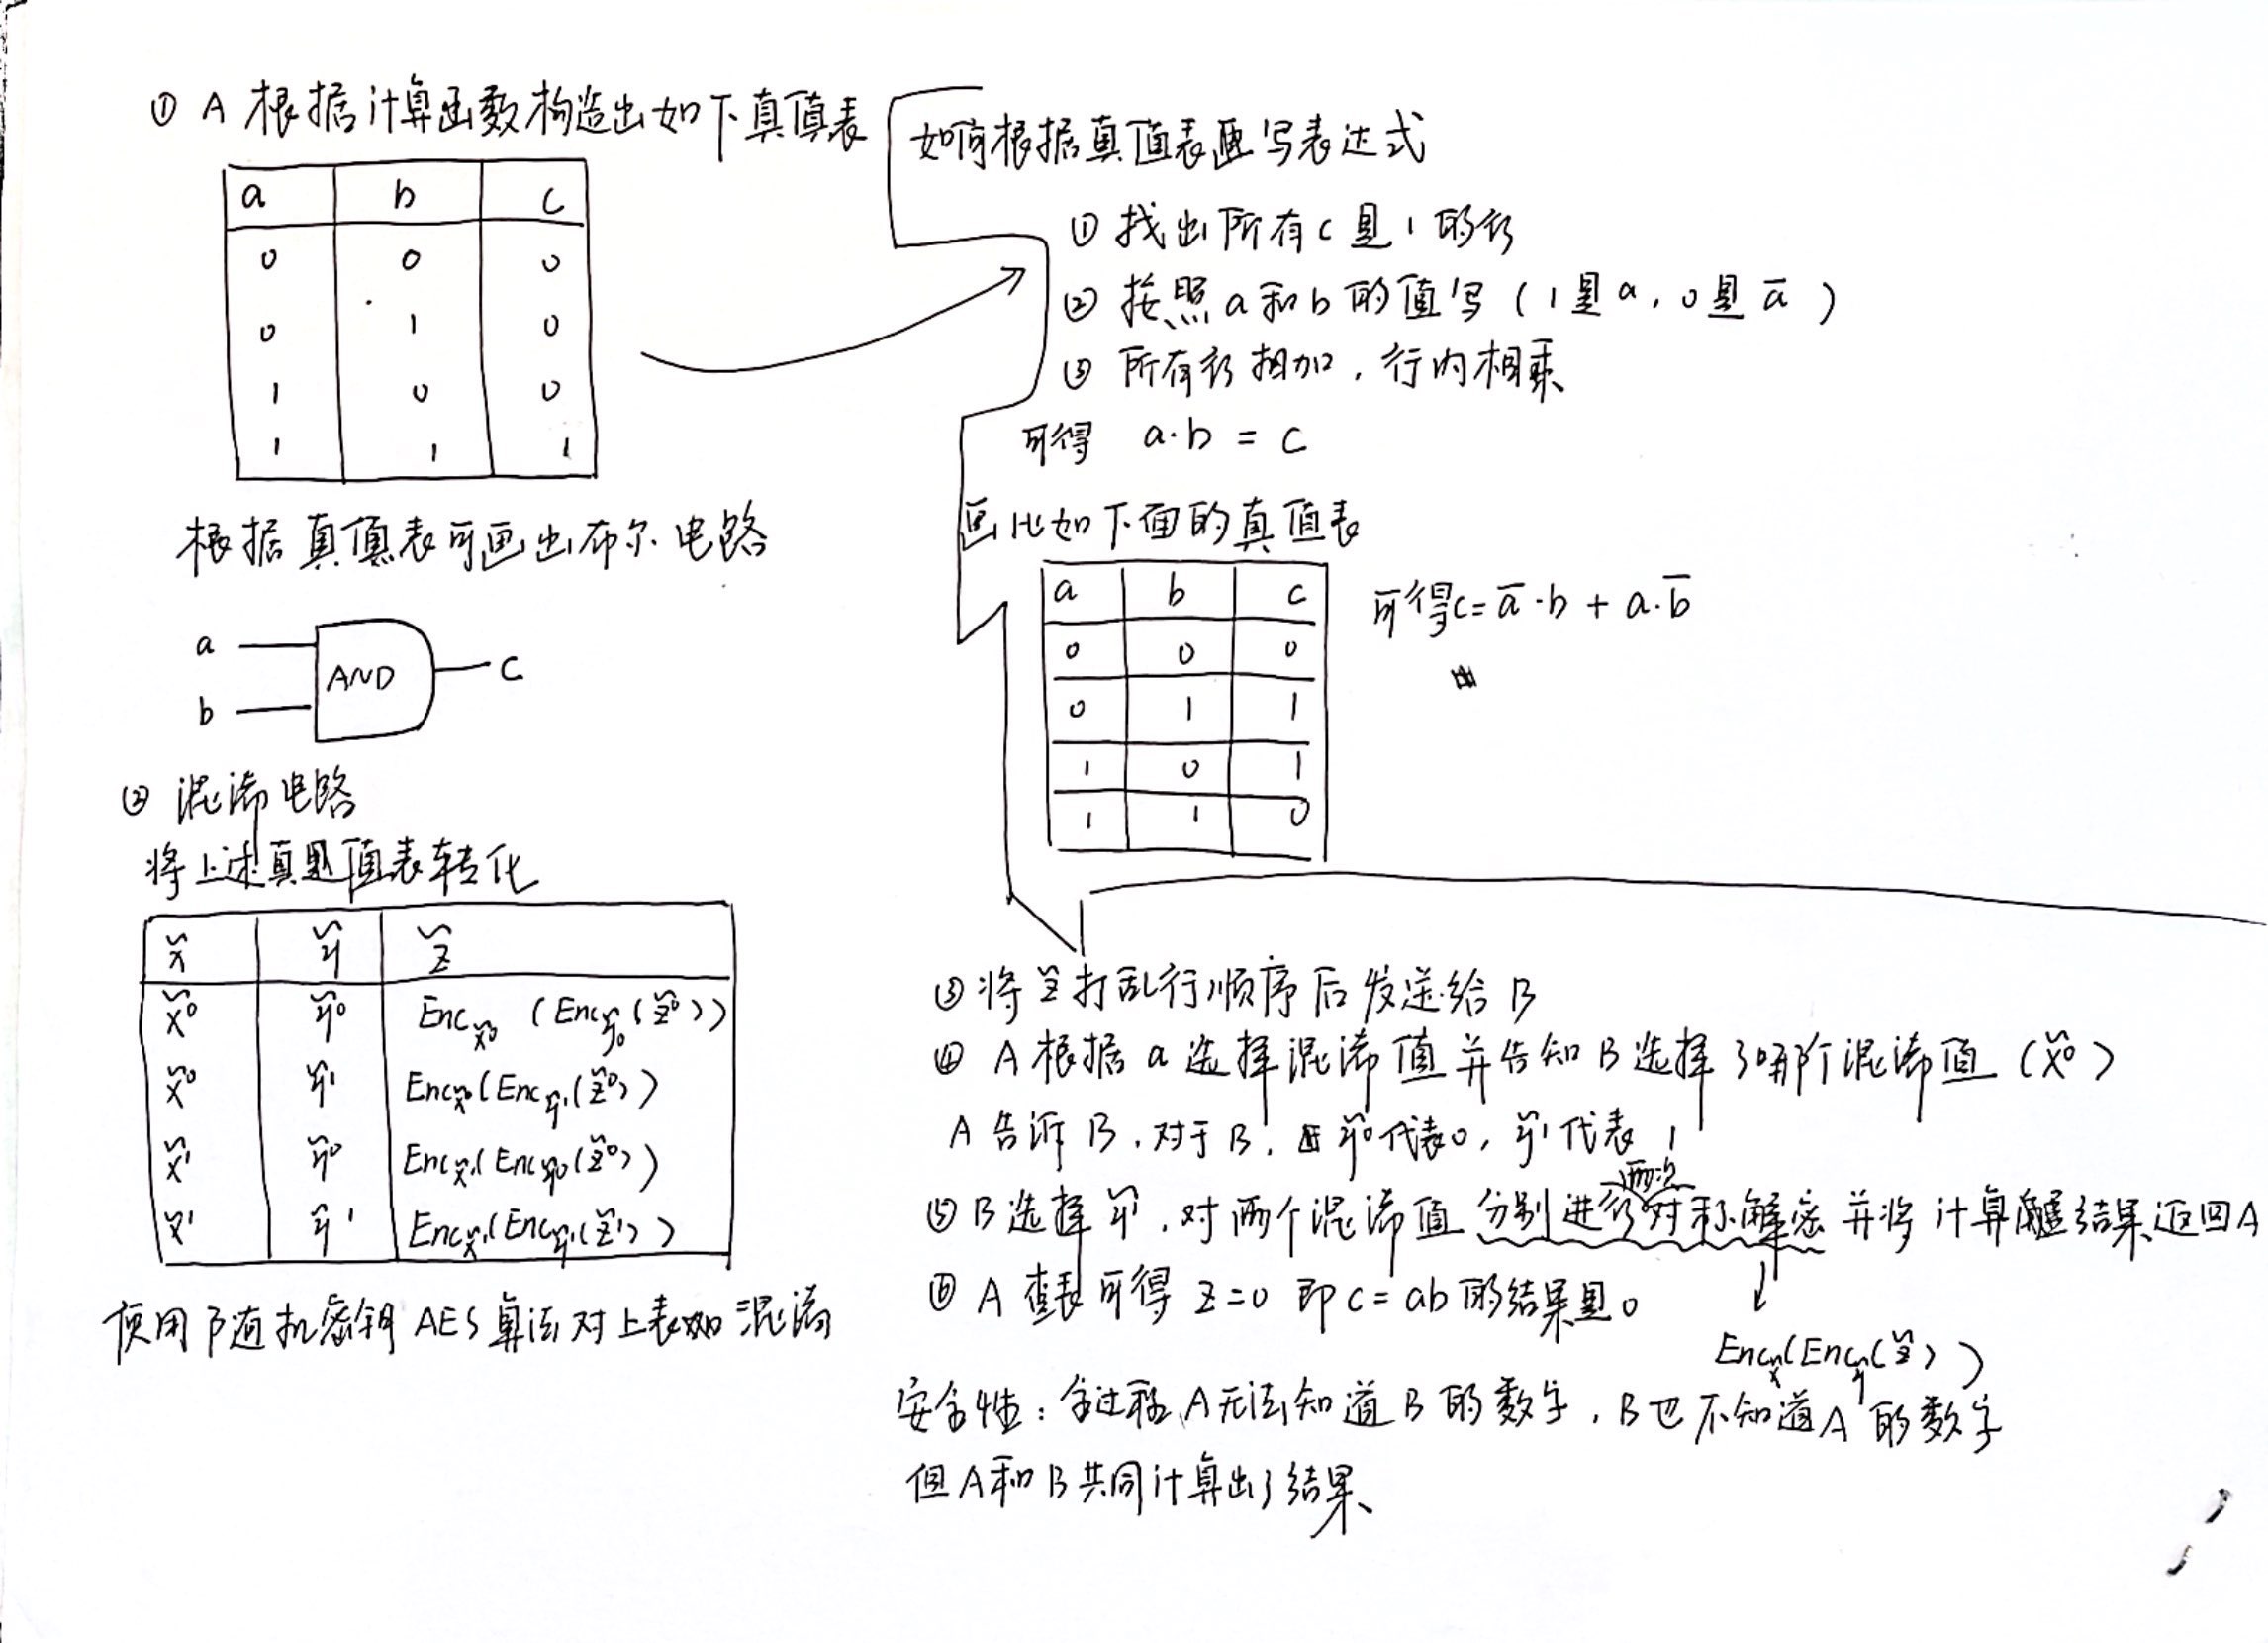 ① A 根据计算函数构造出如下真值表
a b c
0 0 0
0 1 0
1 0 0
1 1 1
根据真值表可画出布尔电路
a
b
AND
C
② 混淆电路
将上述真值表转化
x̃ ỹ z̃
x̃⁰ ỹ⁰ Enc_x̃⁰ (Enc_ỹ⁰(z̃⁰))
x̃⁰ ỹ¹ Enc_x̃⁰(Enc_ỹ¹(z̃⁰))
x̃¹ ỹ⁰ Enc_x̃¹(Enc_ỹ⁰(z̃⁰))
x̃¹ ỹ¹ Enc_x̃¹(Enc_ỹ¹(z̃¹))
使用随机密钥 AES 算法对上表如混淆
如何根据真值表写表达式
① 找出所有 c 是 1 的行
② 按照 a 和 b 的值写 (1是a, 0是ā)
③ 所有行相加, 行内相乘
可得 a·b = c
比如下面的真值表
a b c
0 0 0
0 1 1
1 0 1
1 1 0
可得c= ā·b + a·b̄
③ 将 z̃ 打乱行顺序后发送给 B
④ A 根据 a 选择混淆值并告知 B 选择了哪个混淆值 (x̃⁰)
A 告诉 B, 对于 B, ỹ⁰代表0, ỹ¹代表 1
⑤ B 选择 ỹ¹, 对两个混淆值分别进行两次对称解密并将计算结果返回A
⑥ A 查表可得 z=0 即 c= ab 的结果是0
Enc_x̃(Enc_ỹ(z̃))
安全性: 全过程, A 无法知道 B 的数字, B 也不知道 A 的数字
但 A 和 B 共同计算出了结果